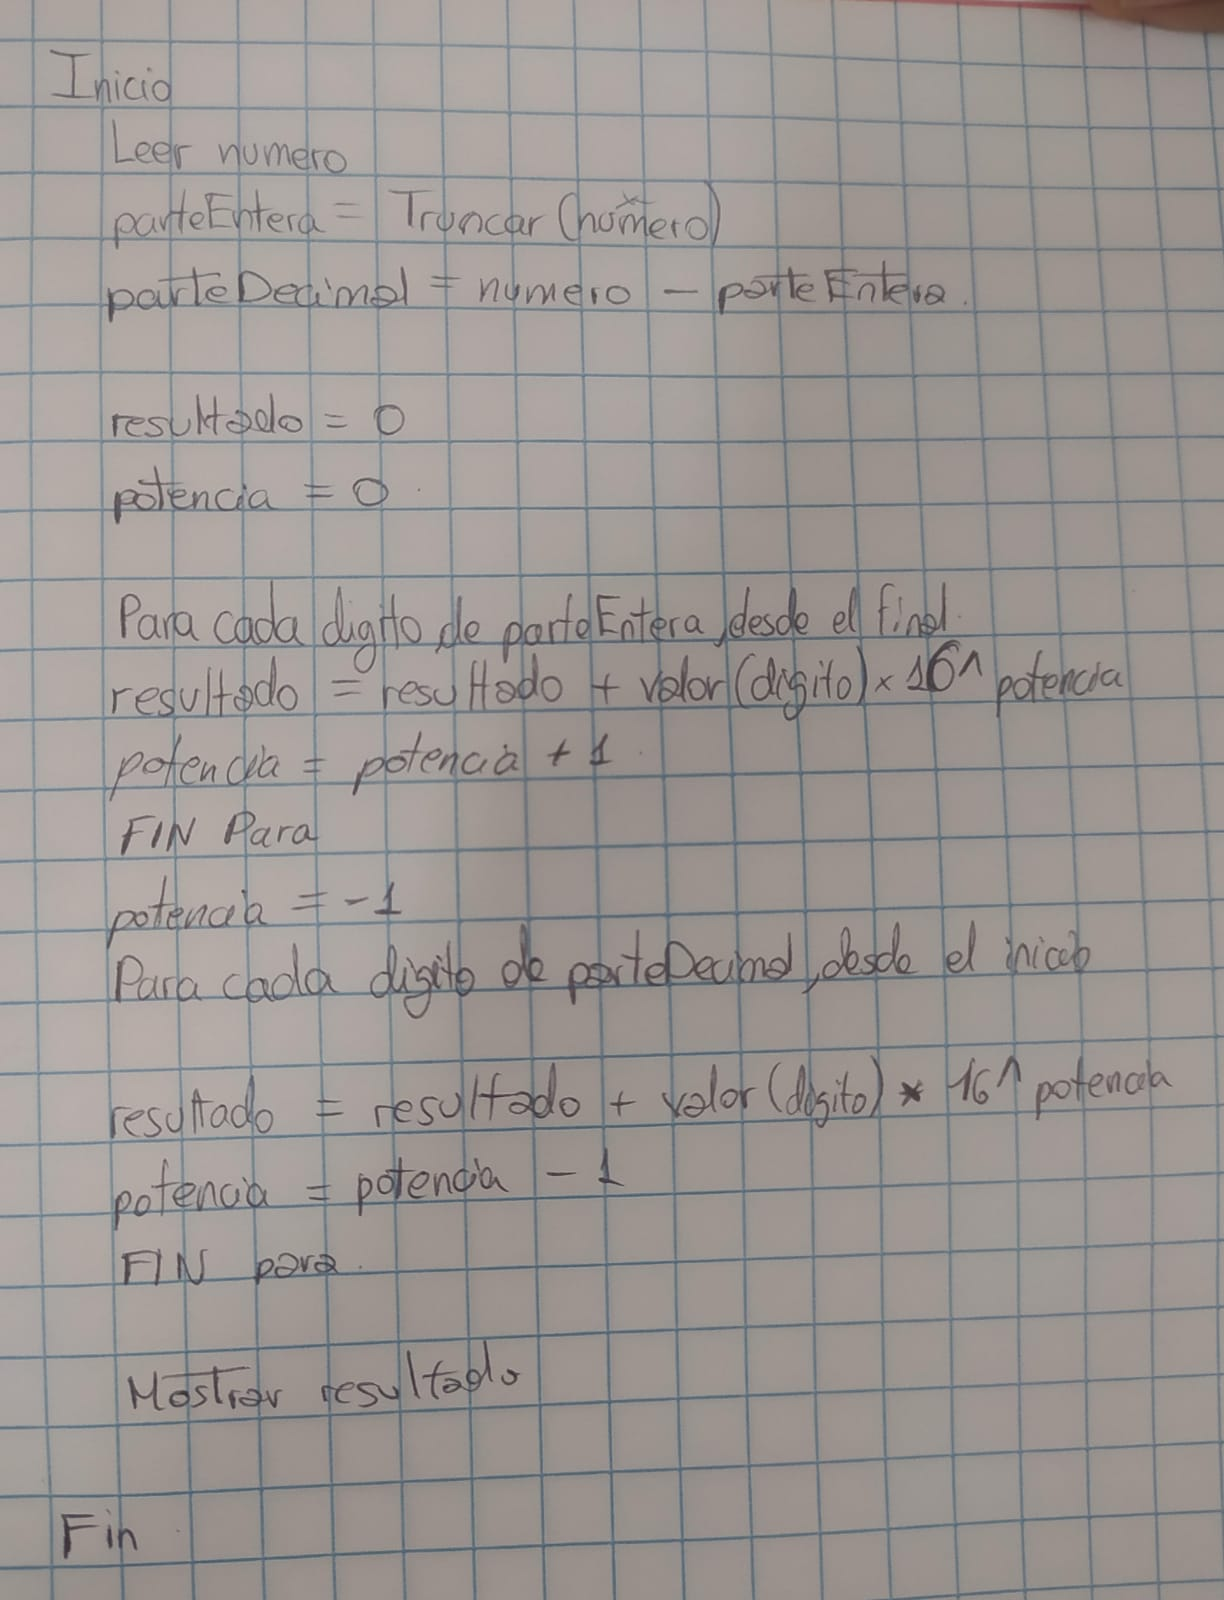 Inicio
Leer numero
parteEntera = Truncar (numero)
parteDecimal = numero - parteEntera.
resultado = 0
potencia = 0
Para cada digito de parteEntera, desde el final.
resultado = resultado + valor (digito) × 16^ potencia
potencia = potencia + 1
FIN Para
potencia = -1
Para cada digito de parteDecimal, desde el inicio
resultado = resultado + valor (digito) * 16^ potencia
potencia = potencia - 1
FIN para.
Mostrar resultado
Fin